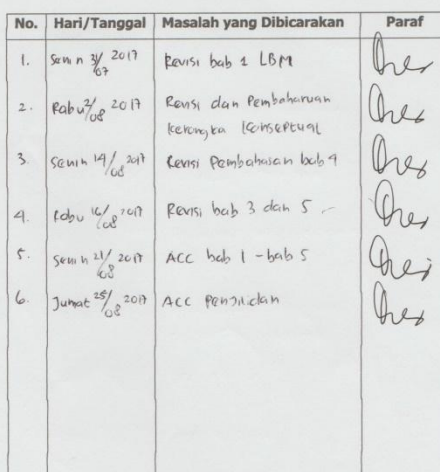 No. Hari/Tanggal Masalah yang Dibicarakan Paraf
1. Senin 31/07 2017 Revisi bab 1 LBM
2. Rabu 2/08 2017 Revisi dan Pembaharuan
Kerangka Konseptual
3. Senin 14/08 2017 Revisi Pembahasan bab 4
4. Rabu 16/08 2017 Revisi bab 3 dan 5
5. Senin 21/08 2017 ACC bab 1 - bab 5
6. Jumat 25/08 2017 ACC